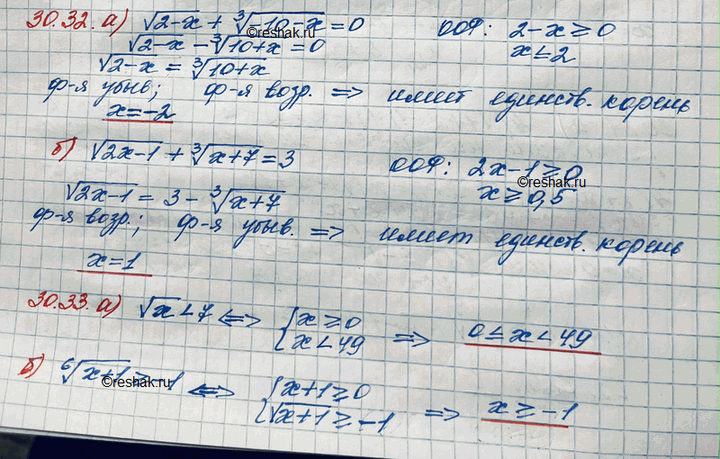 30.32. а) √2-x + ∛-10-x = 0 ООФ: 2-x ≥ 0
√2-x - ∛10+x = 0 x ≤ 2
√2-x = ∛10+x
ф-я убыв; ф-я возр. => имеет единств. корень
x=-2
б) √2x-1 + ∛x+7 = 3 ООФ: 2x-1 ≥ 0
√2x-1 = 3 - ∛x+7 x ≥ 0,5
ф-я возр.; ф-я убыв. => имеет единств. корень
x=1
30.33. а) √x < 7 <=> { x ≥ 0 => 0 ≤ x < 49
{ x < 49
б) ⁶√x+1 ≥ -1 <=> { x+1 ≥ 0 => x ≥ -1
{ √x+1 ≥ -1
©reshak.ru
©reshak.ru
©reshak.ru